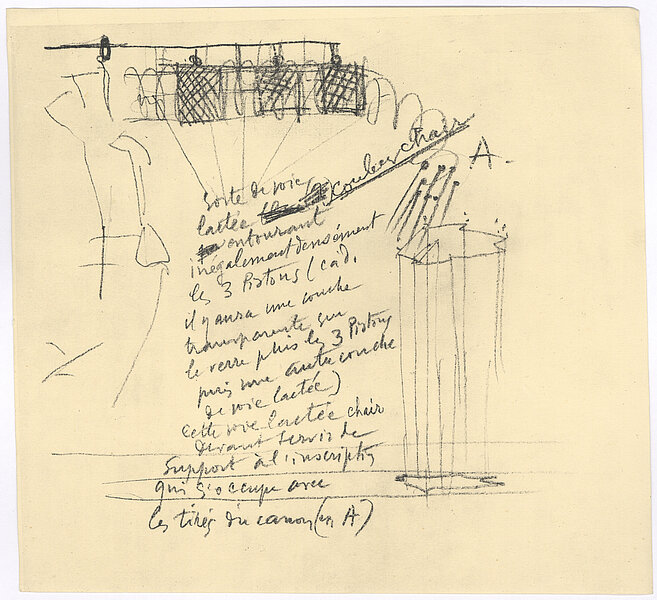 couleur chair
A.
Sorte de voie
lactée
entourant
inégalement densément
les 3 Pistons (càd.
il y aura une couche
transparente sur
le verre puis les 3 Pistons
puis une autre couche
de voie lactée)
Cette voie lactée chair
devant servir de
Support à l'inscription
qui s'occupe avec
les tirés du canon (en A)